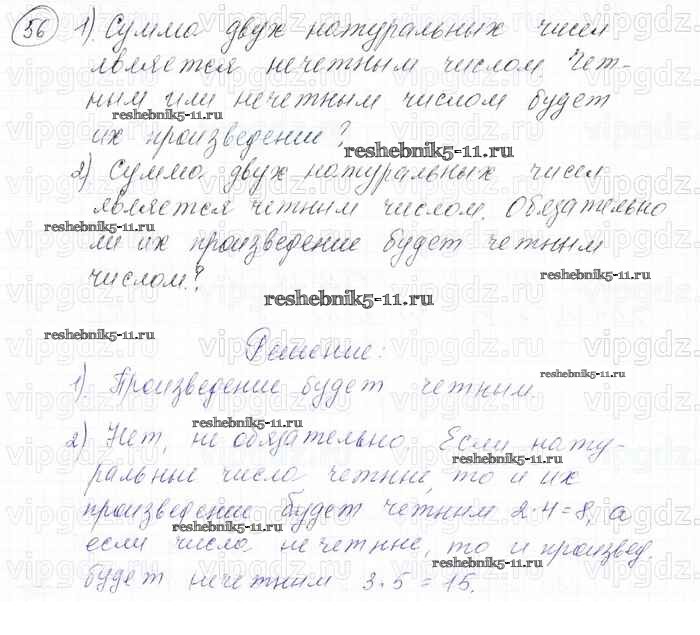 56 1). Сумма двух натуральных чисел
является нечетным числом. Чет-
ным или нечетным числом будет
их произведение?
2) Сумма двух натуральных чисел
является четным числом. Обязательно
ли их произведение будет четным
числом?
Решение:
1). Произведение будет четным.
2) Нет, не обязательно. Если нату-
ральные числа четные, то и их
произведение будет четным 2·4=8, а
если числа нечетные, то и произвед.
будет нечетным 3·5=15.
reshebnik5-11.ru
reshebnik5-11.ru
reshebnik5-11.ru
reshebnik5-11.ru
reshebnik5-11.ru
reshebnik5-11.ru
reshebnik5-11.ru
reshebnik5-11.ru
reshebnik5-11.ru
reshebnik5-11.ru
reshebnik5-11.ru
vipgdz.ru